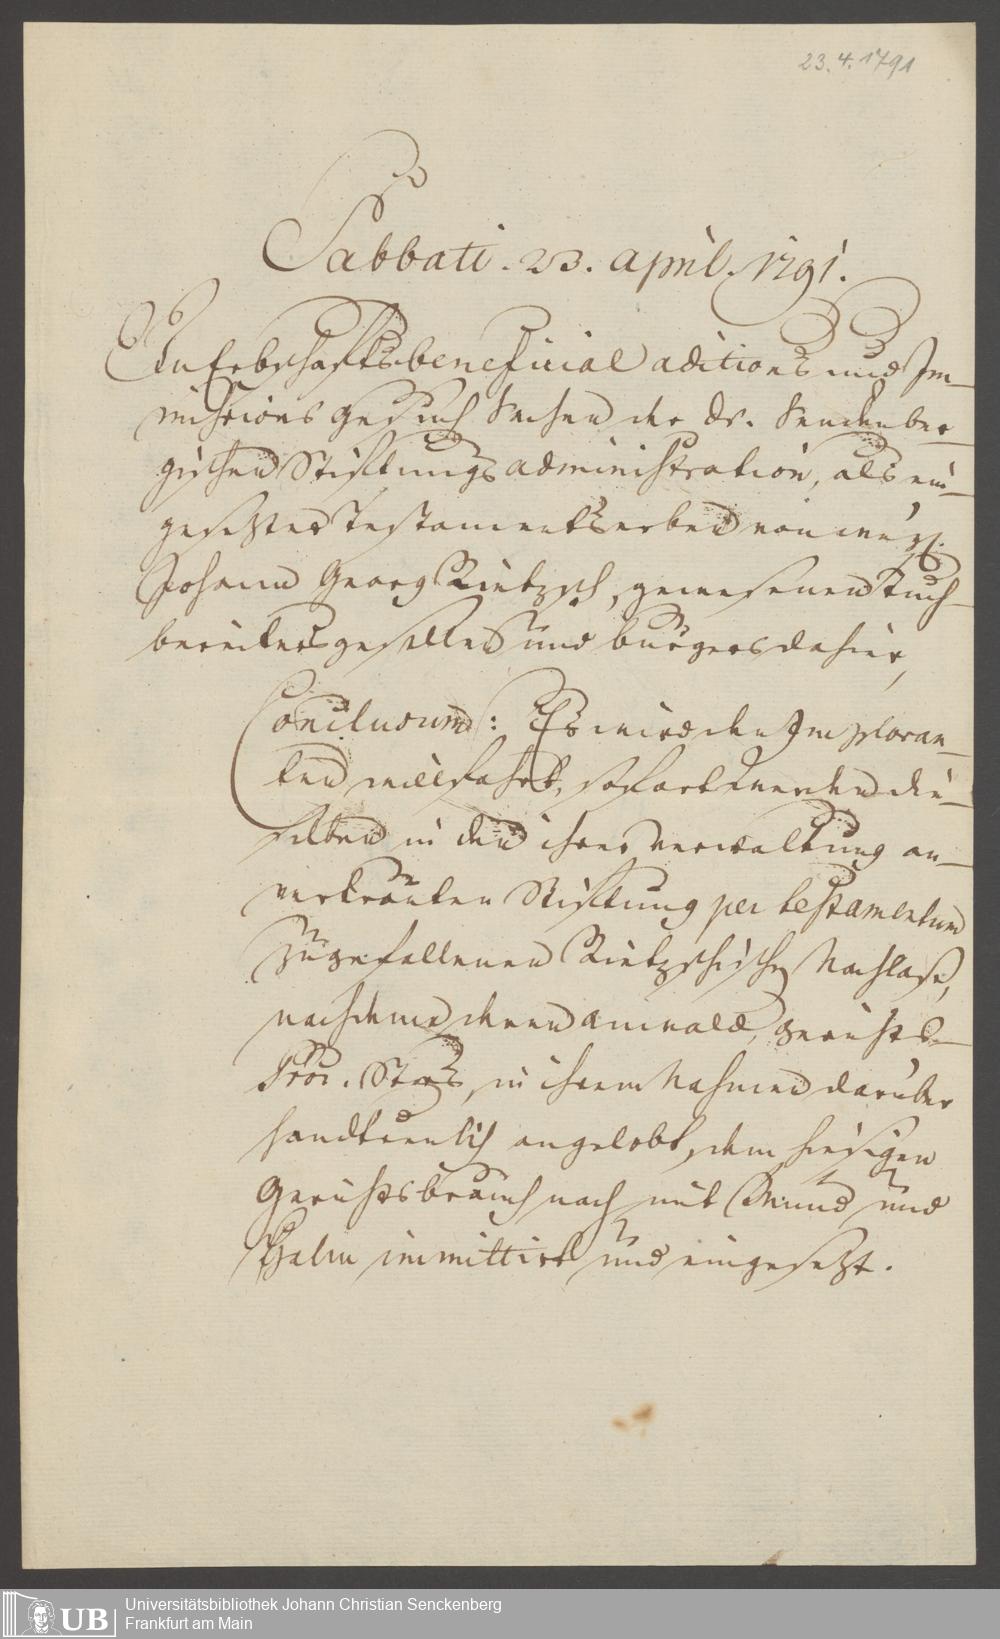 23.4.1791
Sabbati. 23. April. 1791.
In Erbschaftsbeneficial aditions und Im-
missions Gesuch Sachen der Dr. Senckenber-
gischen Stiftungsadministration, als ein-
gesetzter Testamentserben von weyl.
Johann Georg Rietzsch, gewesenen Tuch-
bereitersgesellen und burgers dahier,
Conclusum: Es wird den Imploran-
ten willfahrt, sofort werden die-
selben in den ihrer verwaltung an-
vertrauten Stiftung per testamentum
zugefallenen Rietzschischen Nachlaß,
nachdeme deren anwald, gerichts-
Proc. in ihrem Nahmen darüber
handtreulich angelobt, dem hiesigen
Gerichtsbrauch nach mit Mund und
Halm immittirt und eingesetzt.
UB
Universitätsbibliothek Johann Christian Senckenberg
Frankfurt am Main